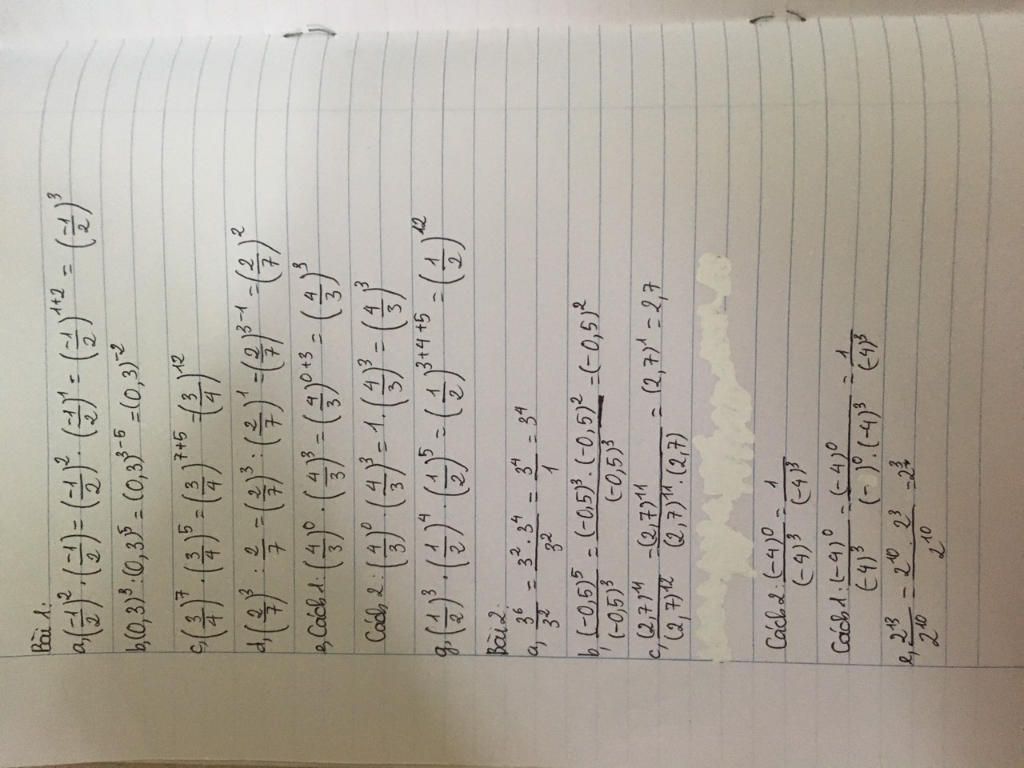 Bài 1:
a, (-1/2)² · (-1/2) = (-1/2)² · (-1/2)¹ = (-1/2)¹⁺² = (-1/2)³
b, (0,3)³ : (0,3)⁵ = (0,3)³⁻⁵ = (0,3)⁻²
c, (3/4)⁷ · (3/4)⁵ = (3/4)⁷⁺⁵ = (3/4)¹²
d, (2/7)³ : 2/7 = (2/7)³ : (2/7)¹ = (2/7)³⁻¹ = (2/7)²
e, Cách 1: (4/3)⁰ · (4/3)³ = (4/3)⁰⁺³ = (4/3)³
Cách 2: (4/3)⁰ · (4/3)³ = 1 · (4/3)³ = (4/3)³
g, (1/2)³ · (1/2)⁴ · (1/2)⁵ = (1/2)³⁺⁴⁺⁵ = (1/2)¹²
Bài 2:
a, 3⁶/3² = 3² · 3⁴/3² = 3⁴/1 = 3⁴
b, (-0,5)⁵/(-0,5)³ = (-0,5)³ · (-0,5)²/(-0,5)³ = (-0,5)²
c, (2,7)¹¹/(2,7)¹² = (2,7)¹¹/(2,7)¹¹ · (2,7) = (2,7)¹ = 2,7
Cách 2: (-4)⁰/(-4)³ = 1/(-4)³
Cách 1: (-4)⁰/(-4)³ = (-4)⁰/(- )⁰ · (-4)³ = 1/(-4)³
e, 2¹³/2¹⁰ = 2¹⁰ · 2³/2¹⁰ = 2³